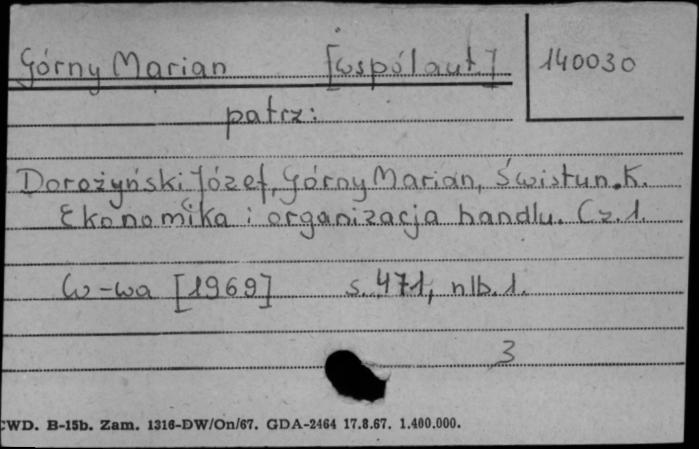 Górny Marian [współaut.] 140030
patrz:
Dorożyński Józef, Górny Marian, Świstun K.
Ekonomika i organizacja handlu. Cz. 1.
W-wa [1969] s. 471, nlb. 1.
3
CWD. B-15b. Zam. 1316-DW/On/67. GDA-2464 17.8.67. 1.400.000.